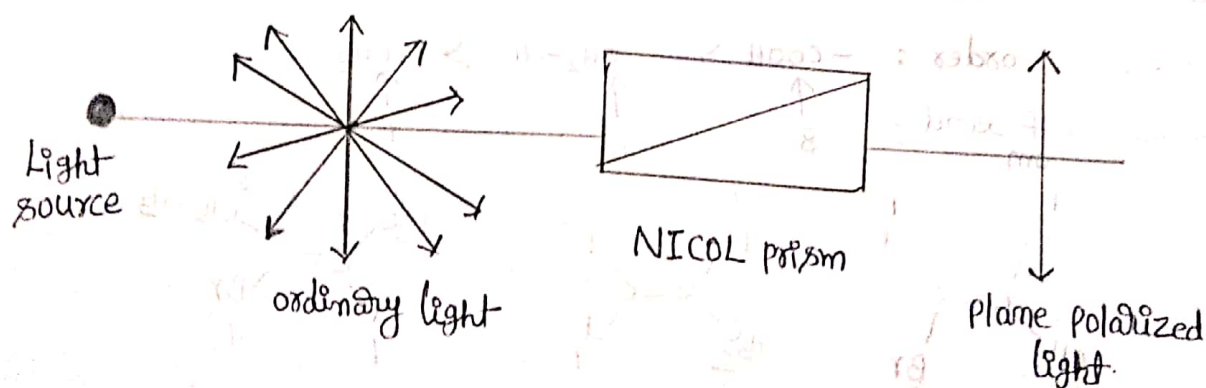 Light
source
ordinary light
NICOL prism
Plane polarized
light.